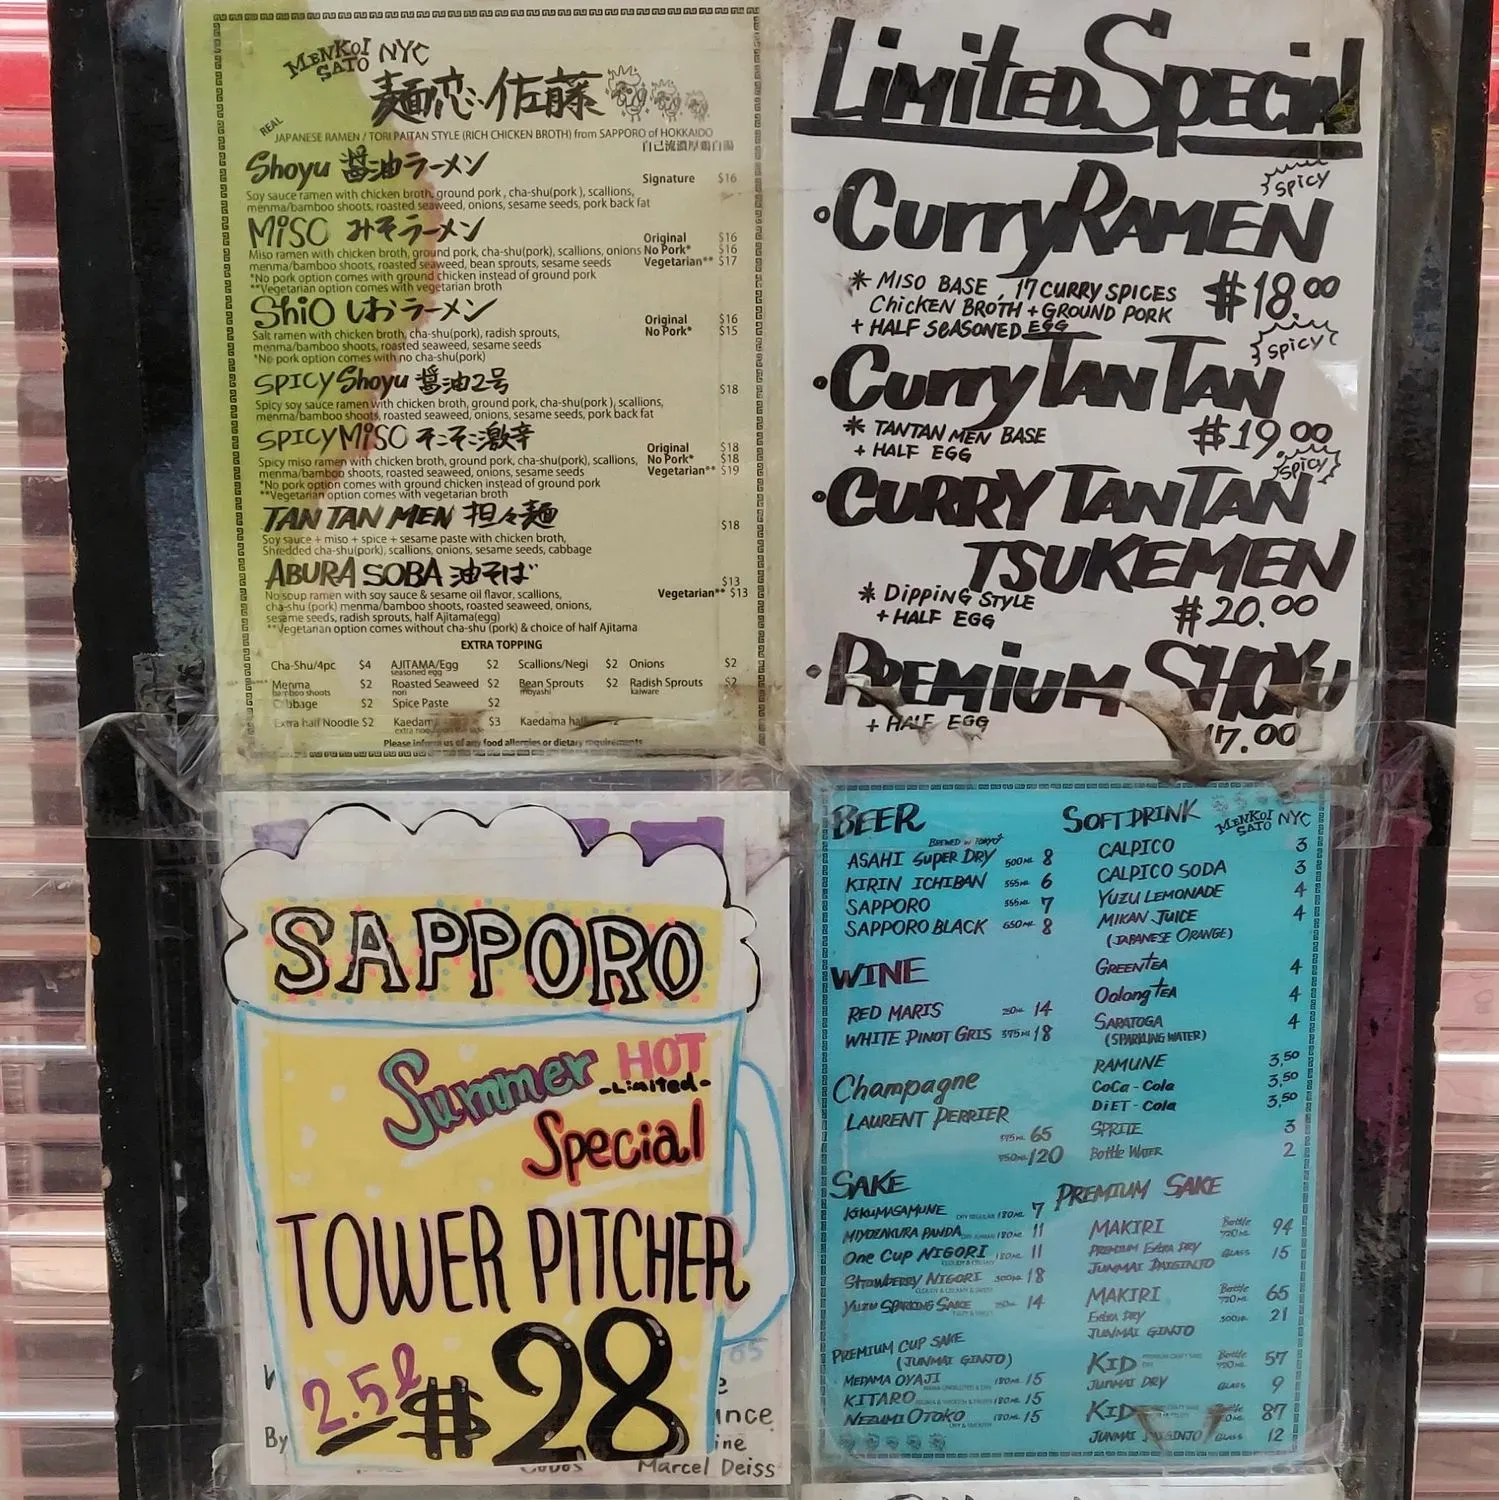 MENKOI SATO NYC
麺恋佐藤
REAL
JAPANESE RAMEN / TORI PAITAN STYLE (RICH CHICKEN BROTH) from SAPPORO of HOKKAIDO
自己流濃厚鶏白湯
Shoyu 醤油ラーメン
Signature $16
Soy sauce ramen with chicken broth, ground pork, cha-shu(pork), scallions,
menma/bamboo shoots, roasted seaweed, onions, sesame seeds, pork back fat
MISO みそラーメン
Original $16
Miso ramen with chicken broth, ground pork, cha-shu(pork), scallions, onions No Pork* $16
menma/bamboo shoots, roasted seaweed, bean sprouts, sesame seeds Vegetarian** $17
*No pork option comes with ground chicken instead of ground pork
**Vegetarian option comes with vegetarian broth
Shio しおラーメン
Original $16
Salt ramen with chicken broth, cha-shu(pork), radish sprouts, No Pork* $15
menma/bamboo shoots, roasted seaweed, sesame seeds
*No pork option comes with no cha-shu(pork)
SPICY Shoyu 醤油2号
$18
Spicy soy sauce ramen with chicken broth, ground pork, cha-shu(pork), scallions,
menma/bamboo shoots, roasted seaweed, onions, sesame seeds, pork back fat
SPICY MISO そこそこ激辛
Original $18
Spicy miso ramen with chicken broth, ground pork, cha-shu(pork), scallions, No Pork* $18
menma/bamboo shoots, roasted seaweed, onions, sesame seeds Vegetarian** $19
*No pork option comes with ground chicken instead of ground pork
**Vegetarian option comes with vegetarian broth
TAN TAN MEN 担々麺
$18
Soy sauce + miso + spice + sesame paste with chicken broth,
Shredded cha-shu(pork), scallions, onions, sesame seeds, cabbage
ABURA SOBA 油そば
$13
No soup ramen with soy sauce & sesame oil flavor, scallions, Vegetarian** $13
cha-shu (pork) menma/bamboo shoots, roasted seaweed, onions,
sesame seeds, radish sprouts, half Ajitama(egg)
**Vegetarian option comes without cha-shu (pork) & choice of half Ajitama
EXTRA TOPPING
Cha-Shu/4pc $4 AJITAMA/Egg $2 Scallions/Negi $2 Onions $2
seasoned egg
Menma $2 Roasted Seaweed $2 Bean Sprouts $2 Radish Sprouts $2
bamboo shoots nori moyashi kaiware
Cabbage $2 Spice Paste $2
Extra half Noodle $2 Kaedama $3 Kaedama half
Please inform us of any food allergies or dietary requirements
LIMITED SPECIAL
SPICY
Curry RAMEN
$18.00
* MISO BASE, 17 CURRY SPICES
CHICKEN BROTH + GROUND PORK
+ HALF SEASONED EGG
SPICY
Curry TAN TAN
$19.00
* TANTAN MEN BASE
+ HALF EGG
SPICY
CURRY TAN TAN
TSUKEMEN
* DIPPING STYLE
+ HALF EGG
$20.00
PREMIUM SHOYU
+ HALF EGG
17.00
SAPPORO
Summer HOT
-Limited-
Special
TOWER PITCHER
2.5ℓ
$28
By
Marcel Deiss
MENKOI SATO NYC
BEER
BREWED IN TOKYO
ASAHI SUPER DRY 500ML 8
KIRIN ICHIBAN 355ML 6
SAPPORO 355ML 7
SAPPORO BLACK 650ML 8
WINE
RED MARIS 250ML 14
WHITE PINOT GRIS 375ML 18
Champagne
LAURENT PERRIER
375ML 65
750ML 120
SAKE
KIKUMASAMUNE 180ML 7
MIYOZAKURA PANDA 180ML 11
One Cup NIGORI 180ML 11
Strawberry NIGORI 300ML 18
YUZU SPARKING SAKE 14
PREMIUM CUP SAKE
(JUNMAI GINJO)
MEDAMA OYAJI 180ML 15
KITARO 180ML 15
NEZUMI OTOKO 180ML 15
SOFT DRINK
CALPICO 3
CALPICO SODA 3
YUZU LEMONADE 4
MIKAN JUICE 4
(JAPANESE ORANGE)
GREEN TEA 4
Oolong TEA 4
SARATOGA 4
(SPARKLING WATER)
RAMUNE 3,50
CoCa-Cola 3,50
DIET-Cola 3,50
SPRITE 3
Bottle WATER 2
PREMIUM SAKE
MAKIRI Bottle 720ML 94
PREMIUM EXTRA DRY GLASS 15
JUNMAI DAIGINJO
MAKIRI Bottle 720ML 65
EXTRA DRY 300ML 21
JUNMAI GINJO
KID Bottle 720ML 57
JUNMAI DRY GLASS 9
KID 87
JUNMAI DAIGINJO GLASS 12